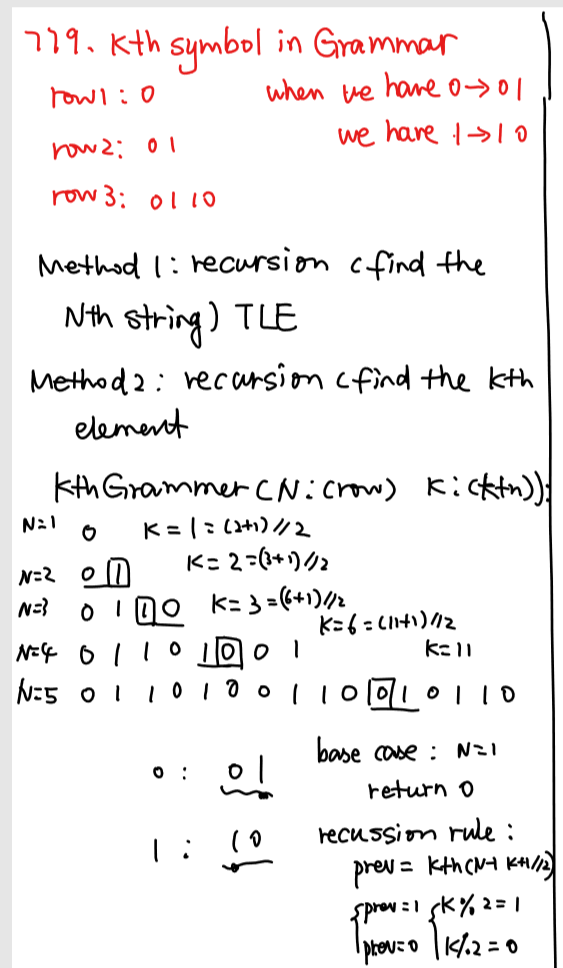 779. Kth symbol in Grammar
row1 : 0 when we have 0→01
row2: 01 we have 1→10
row3: 0110
Method 1: recursion (find the
Nth string) TLE
Method 2: recursion (find the kth
element
KthGrammer (N: (row) K: (kth)):
N=1 0 K=1=(2+1)//2
N=2 0 1 K=2=(3+1)//2
N=3 0 1 1 0 K=3=(6+1)//2
K=6=(11+1)//2
N=4 0 1 1 0 1 0 0 1 K=11
N=5 0 1 1 0 1 0 0 1 1 0 0 1 0 1 1 0
base case: N=1
0 : 01
return 0
1 : 10 recussion rule:
prev = kth(N-1 K+1//2)
prev=1 K%2=1
prev=0 K%2=0